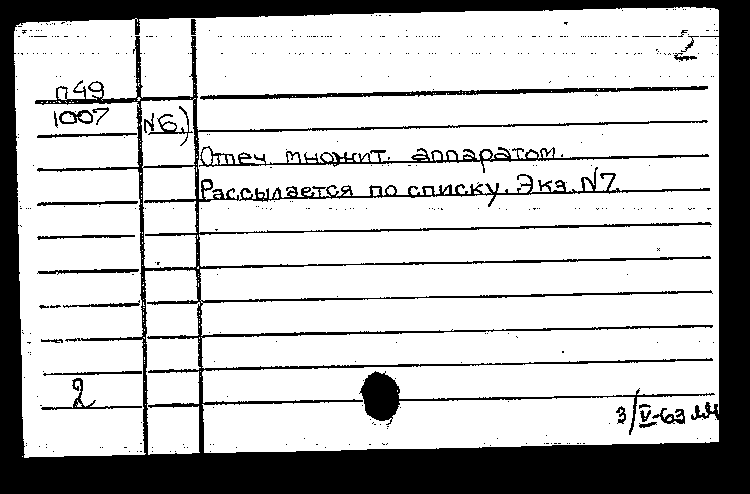 2
П49
1007
№6.)
Отпеч. множит. аппаратом.
Рассылается по списку. Экз. №7.
2
3/V-63